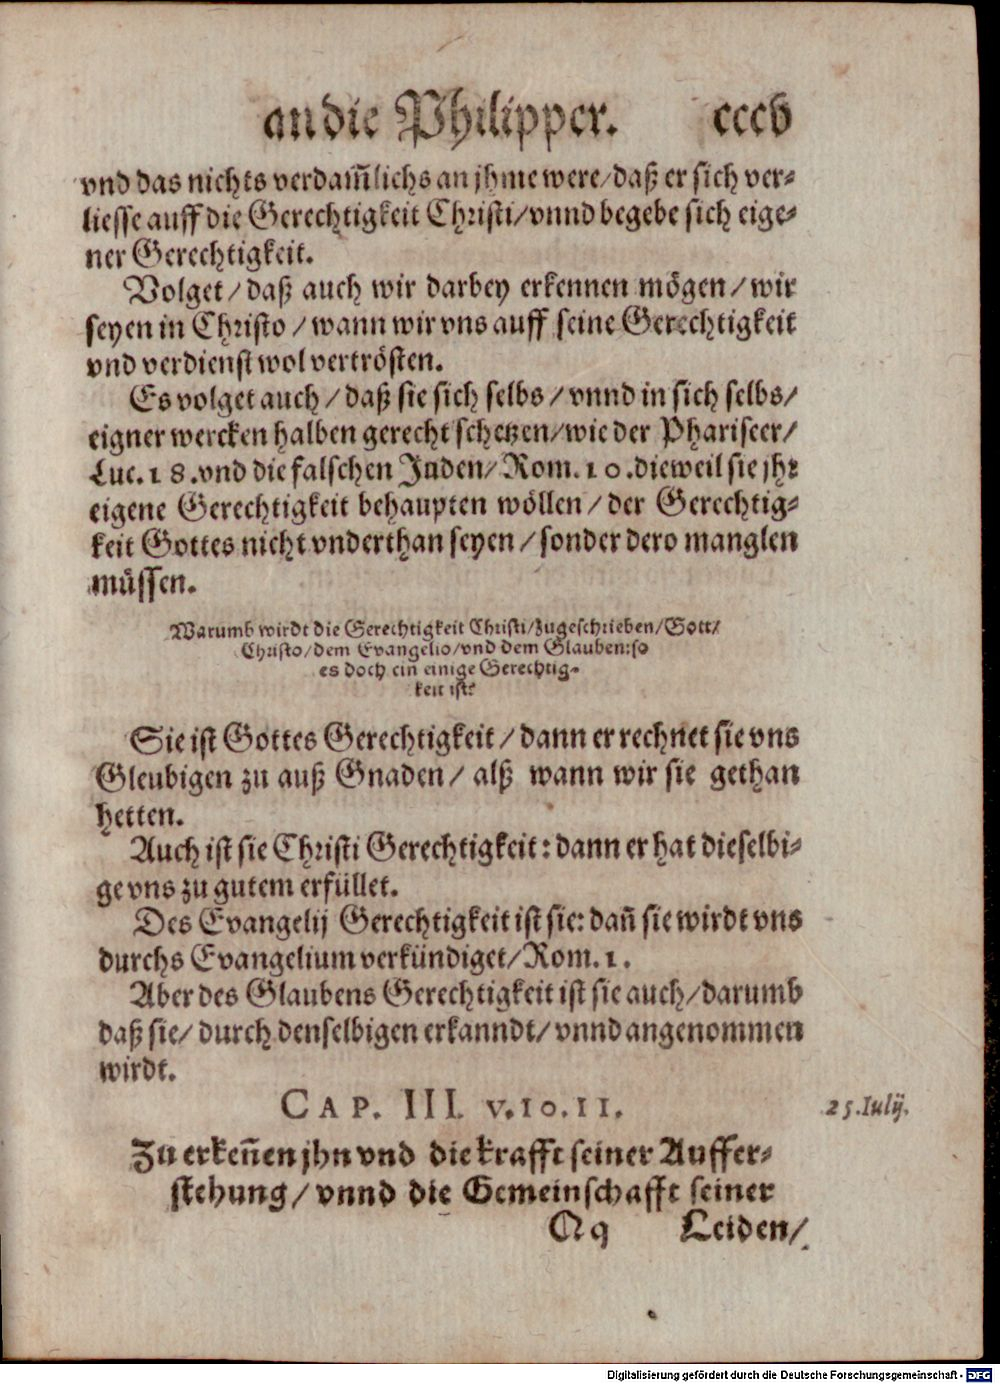 an die Philipper. cccv
vnd das nichts verdam̃lichs an jhme were/daß er sich ver-
liesse auff die Gerechtigkeit Christi/vnnd begebe sich eige-
ner Gerechtigkeit.
Volget/daß auch wir darbey erkennen mögen/wir
seyen in Christo/wann wir vns auff seine Gerechtigkeit
vnd verdienst wol vertrösten.
Es volget auch/daß sie sich selbs/vnnd in sich selbs/
eigner wercken halben gerecht schetzen/wie der Phariseer/
Luc. 18. vnd die falschen Juden/Rom. 10. dieweil sie jhr
eigene Gerechtigkeit behaupten wöllen/der Gerechtig-
keit Gottes nicht vnderthan seyen/sonder dero manglen
müssen.
Warumb wirdt die Gerechtigkeit Christi/zugeschrieben/Gott/
Christo/dem Evangelio/vnd dem Glauben: so
es doch ein einige Gerechtig-
keit ist?
Sie ist Gottes Gerechtigkeit/dann er rechnet sie vns
Gleubigen zu auß Gnaden/alß wann wir sie gethan
hetten.
Auch ist sie Christi Gerechtigkeit: dann er hat dieselbi-
ge vns zu gutem erfüllet.
Des Evangelij Gerechtigkeit ist sie: dañ sie wirdt vns
durchs Evangelium verkündiget/Rom. 1.
Aber des Glaubens Gerechtigkeit ist sie auch/darumb
daß sie/durch denselbigen erkanndt/vnnd angenommen
wirdt.
CAP. III. v. 10. 11. 25. Iulij.
Zu erkeñen jhn vnd die krafft seiner Auffer-
stehung/vnnd die Gemeinschafft seiner
Qq Leiden/
Digitalisierung gefördert durch die Deutsche Forschungsgemeinschaft - DFG